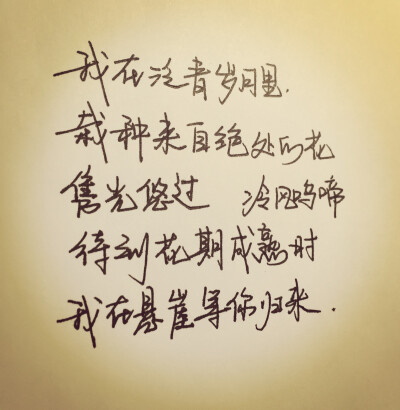 我在泛青岁月里.
栽种来自绝处的花
售光悠过 冷风呜啼
待到花期成熟时
我在悬崖等你归来.